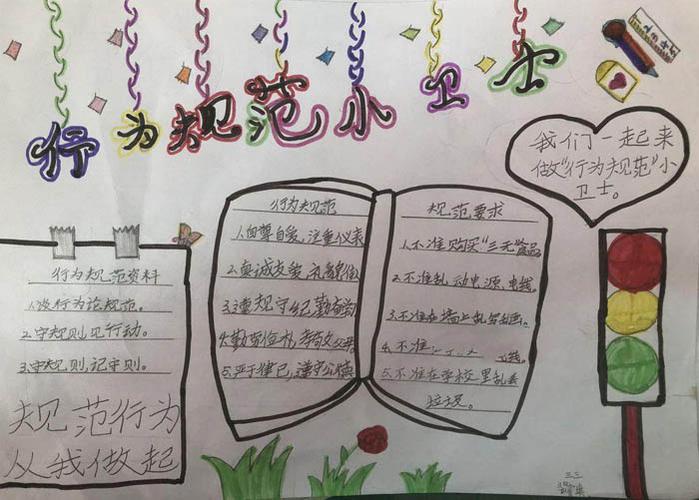 行为规范小卫士
我们一起来
做“行为规范”小
卫士。
行为规范
1.自尊自爱，注重仪表
2.真诚友爱，礼貌待人
3.遵规守纪，勤奋
4.勤劳俭朴，孝敬父母
5.严于律己，遵守公德
规范要求
1.不准购买“三无”食品
2.不准乱动电源，电线。
3.不准在墙上乱写乱画。
4.不准
5.不准在学校里乱丢
垃圾。
行为规范资料
1.谈行为论规范。
2.守规则，见行动。
3.守规则，记守则。
规范行为
从我做起
三三